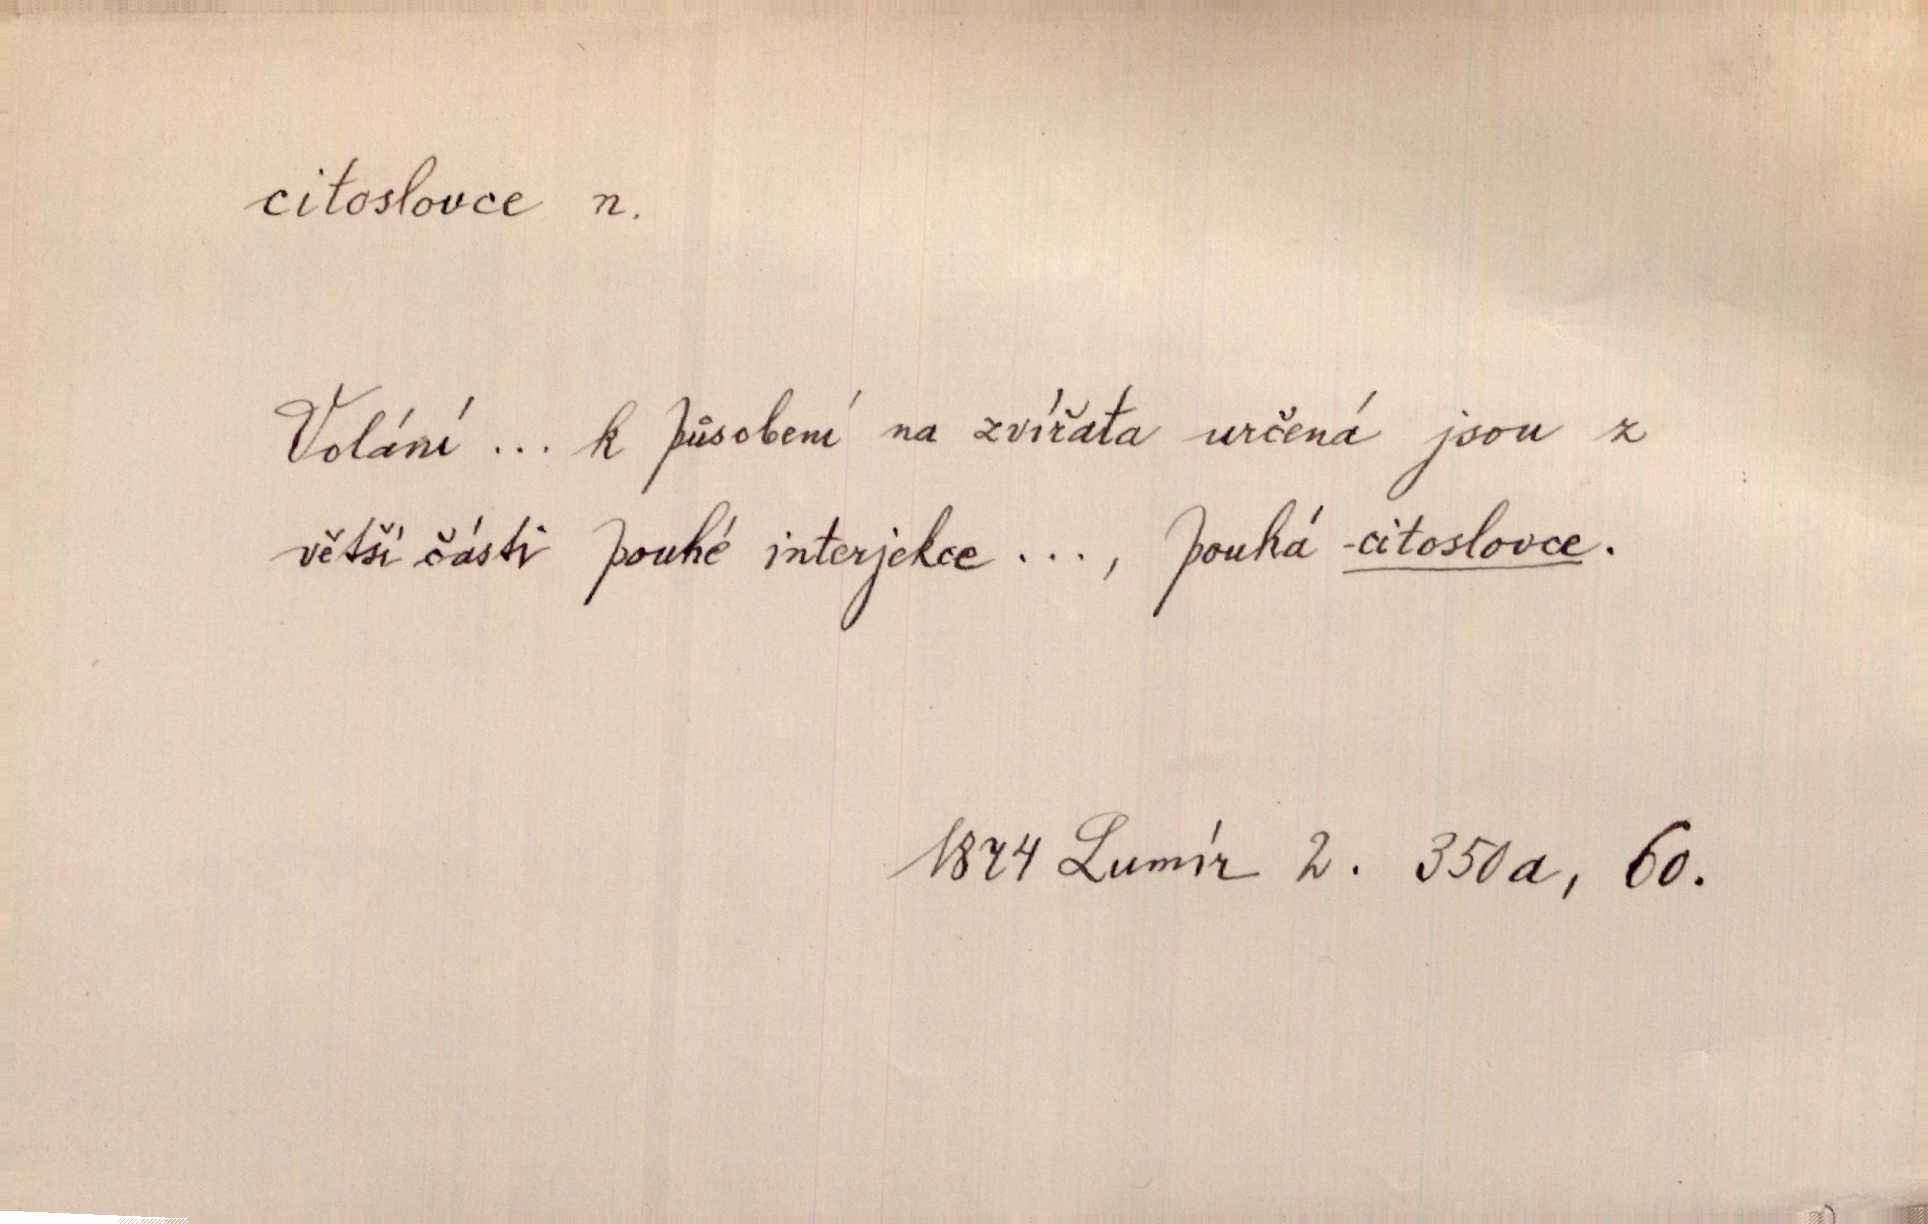 citoslovce n.
Volání ... k působení na zvířata určená jsou z
větší části pouhé interjekce ..., pouhá citoslovce.
1874 Lumír 2. 350a, 60.